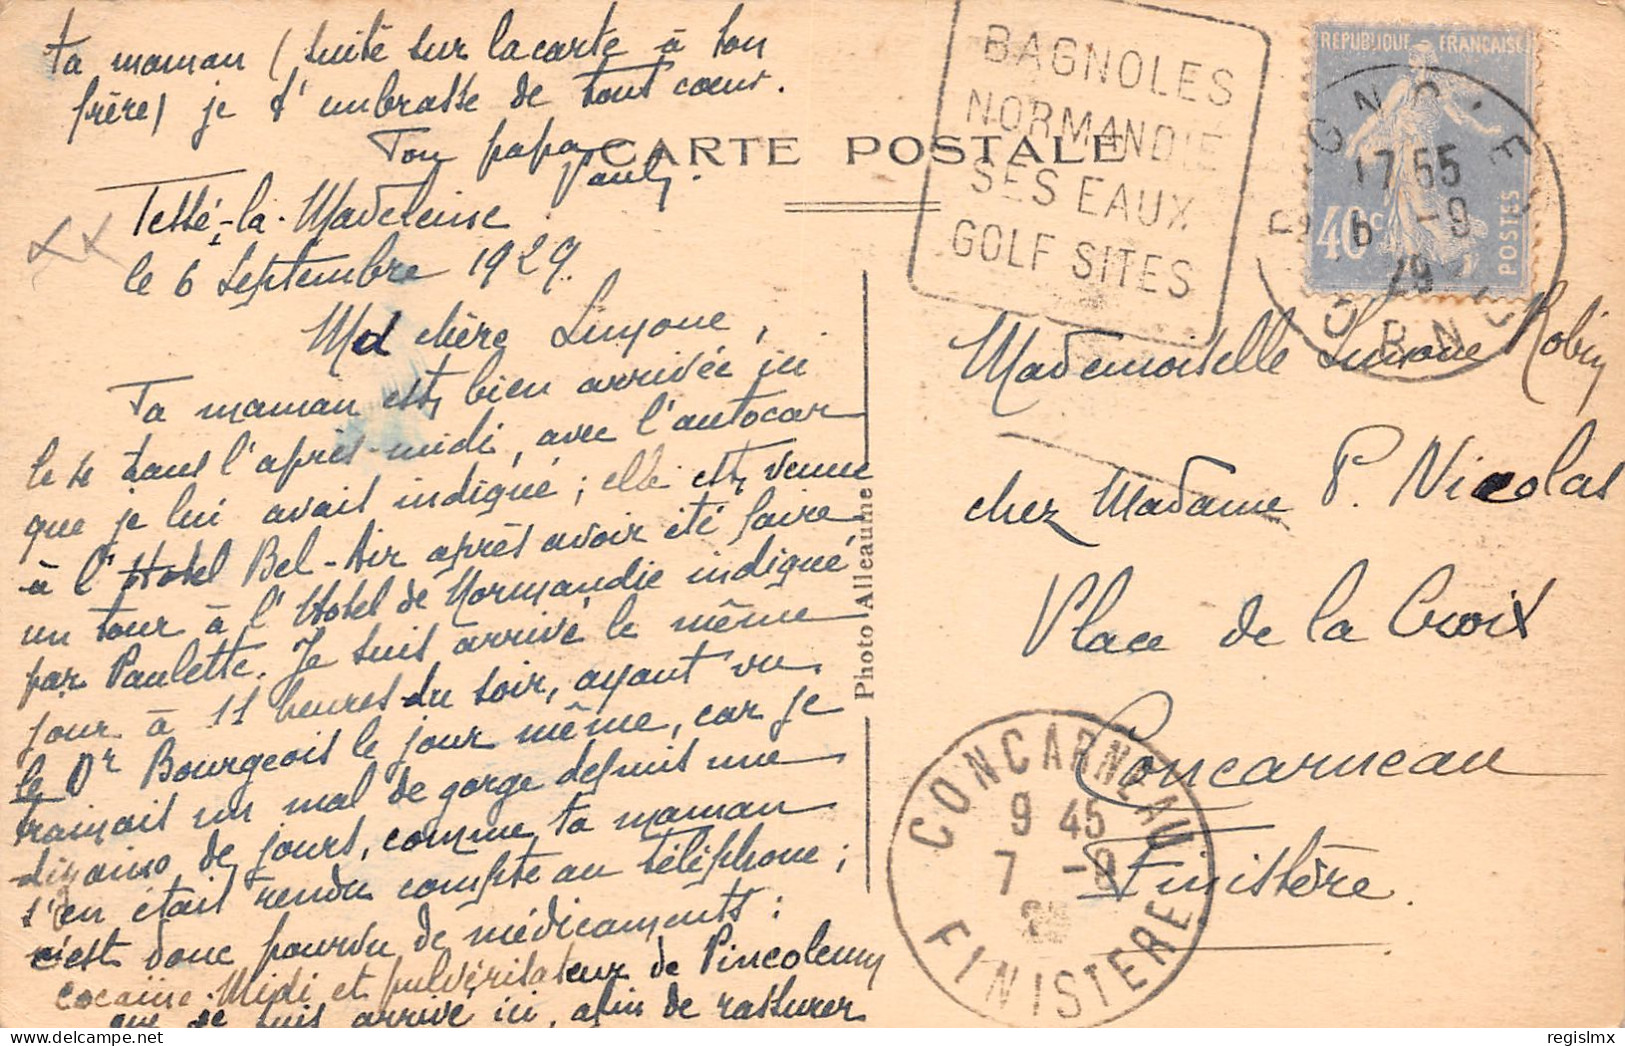 ta maman (suite sur la carte à ton
frère) je t'embrasse de tout coeur.
Ton papa
Paul.
CARTE POSTALE
Tessé-la-Madeleine
le 6 septembre 1929.
Ma chère Simone,
Ta maman est bien arrivée ici
le 4 dans l'après-midi, avec l'autocar
que je lui avais indiqué ; elle est venue
à l'Hotel Bel-Air après avoir été faire
un tour à l'Hotel de Normandie indiqué
par Paulette. Je suis arrivé le même
jour à 11 heures du soir, ayant vu
le Dr Bourgeois le jour même, car je
trainais un mal de gorge depuis une
dizaine de jours, comme ta maman
s'en était rendu compte au téléphone ;
c'est donc pourvu de médicaments :
cocaïne-Midi et pulvérisateur de
que je suis arrivé ici, afin de rassurer
Photo Alleaume
BAGNOLES
NORMANDIE
SES EAUX
GOLF SITES
REPUBLIQUE FRANÇAISE
40c
POSTES
17 55
6 -9
29
ORNE
Mademoiselle Simone Robin
chez Madame P. Nicolas
Place de la Croix
Concarneau
Finistère.
CONCARNEAU
9 45
7 -9
FINISTERE
www.delcampe.net
regislmx